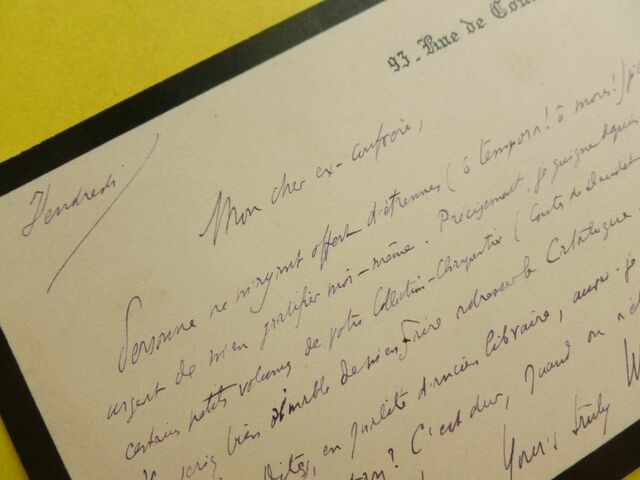 93, Rue de Cour
Vendredi
Mon cher ex-confrère,
Personne ne m'ayant offert d'étrennes (ô tempora! ô mores!) j'ai
urgent de m'en gratifier moi-même. Précisément je guigne depuis
certains petits volumes de votre Collection-Charpentier (Contes de Daudet
bien aimable de m'en faire adresser le Catalogue.
Dites, en qualité d'ancien libraire, aurai-je
? C'est dur, quand on n'é
Your's truly W